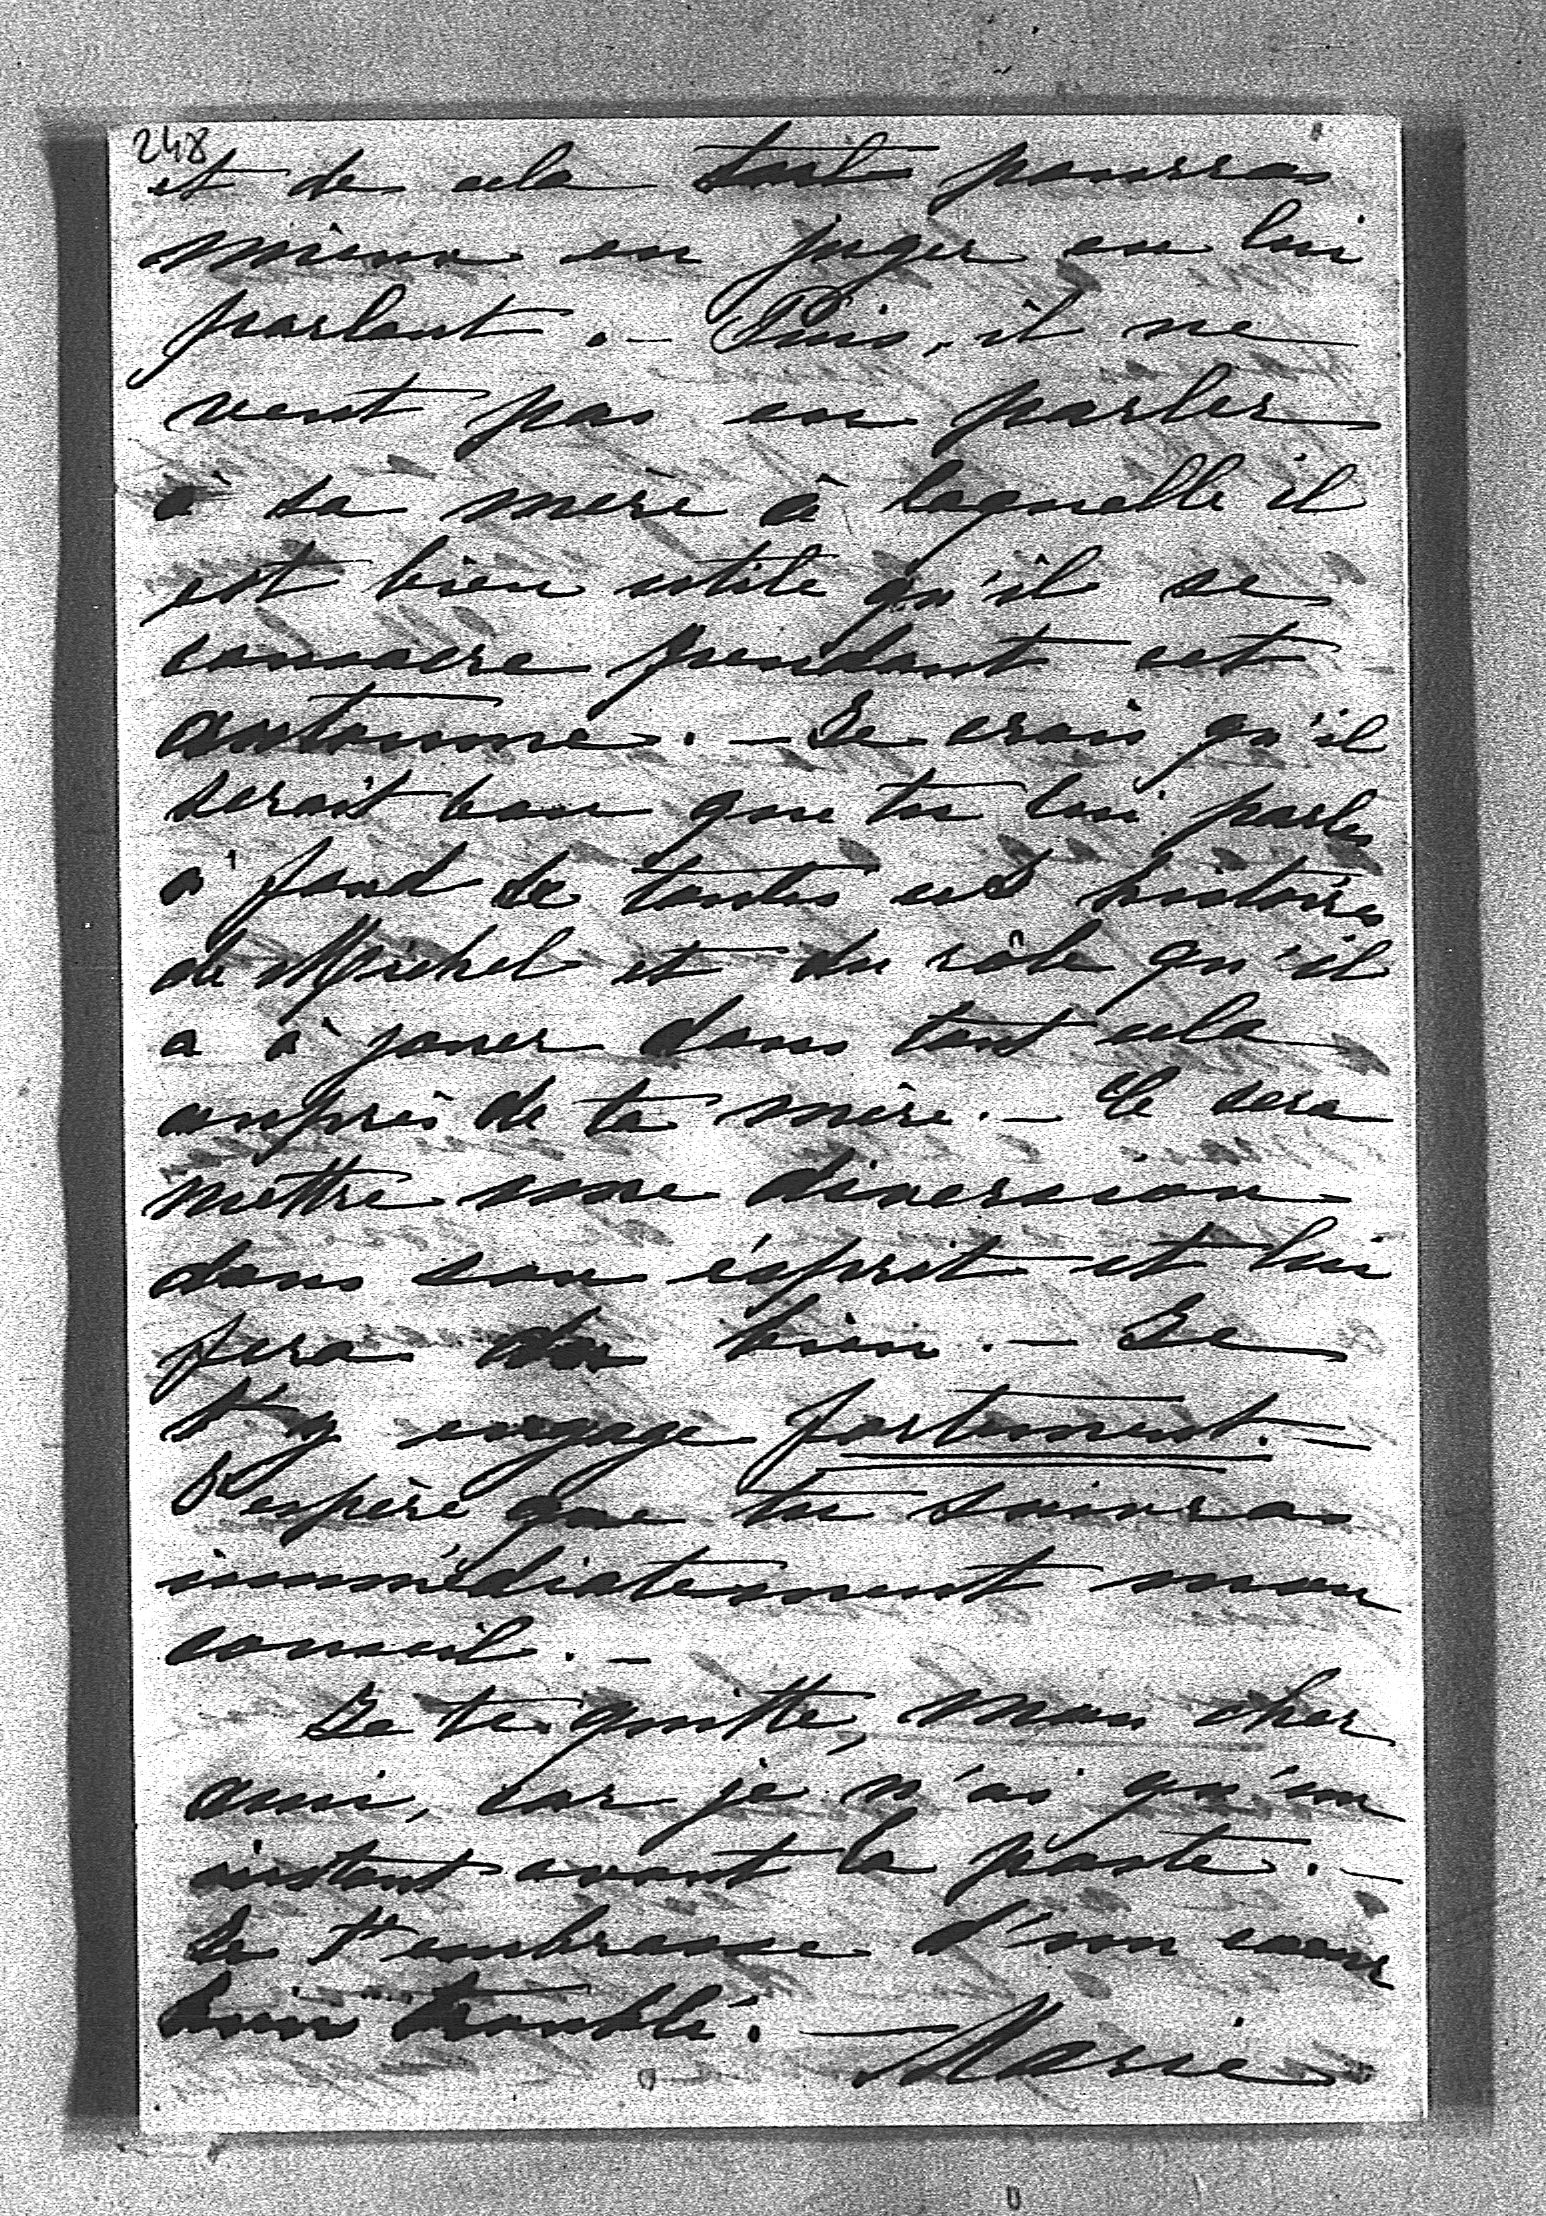 248
et de cela toi pourras
mieux en juger en lui
parlant. — Puis, il ne
veut pas en parler
à sa mère à laquelle il
est bien utile qu'il se
consacre pendant cet
automne. — Je crois qu'il
serait bon que tu lui parles
à fond de toutes ces histoires
de Michel et du rôle qu'il
a à jouer dans tout cela
auprès de ta mère. — Ce sera
mettre une diversion
dans son ésprit et lui
fera du bien. — Je
t'y engage fortement. —
J'espère que tu suivras
immédiatement mon
conseil. —
Je te quitte, mon cher
ami, car je n'ai qu'un
instant avant la poste. —
Je t'embrasse d'un cœur
bien troublé. —
Marie